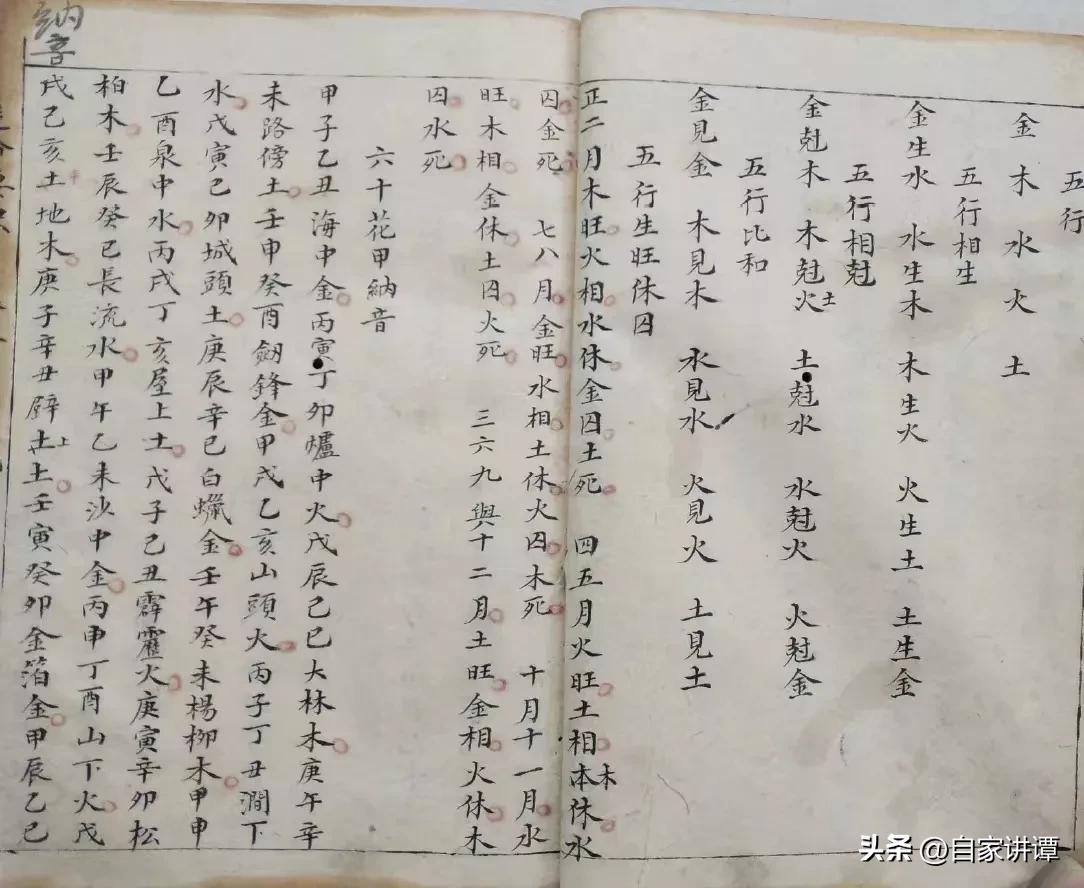 五行
金 木 水 火 土
五行相生
金生水 水生木 木生火 火生土 土生金
五行相尅
金尅木 木尅火土 土尅水 水尅火 火尅金
五行比和
金見金 木見木 水見水 火見火 土見土
五行生旺休囚
正二月木旺火相水休金囚土死 四五月火旺土相本木休水
囚金死 七八月金旺水相土休火囚木死 十月十一月水
旺木相金休土囚火死 三六九與十二月土旺金相火休木
囚水死
六十花甲納音
甲子乙丑海中金丙寅丁卯爐中火戊辰己巳大林木庚午辛
未路傍土壬申癸酉劒鋒金甲戌乙亥山頭火丙子丁丑澗下
水戊寅己卯城頭土庚辰辛巳白蠟金壬午癸未楊柳木甲申
乙酉泉中水丙戌丁亥屋上土戊子己丑霹靂火庚寅辛卯松
柏木壬辰癸巳長流水甲午乙未沙中金丙申丁酉山下火戊
戌己亥土地木庚子辛丑壁土上土壬寅癸卯金箔金甲辰乙巳
納音
头条 @自家讲谭